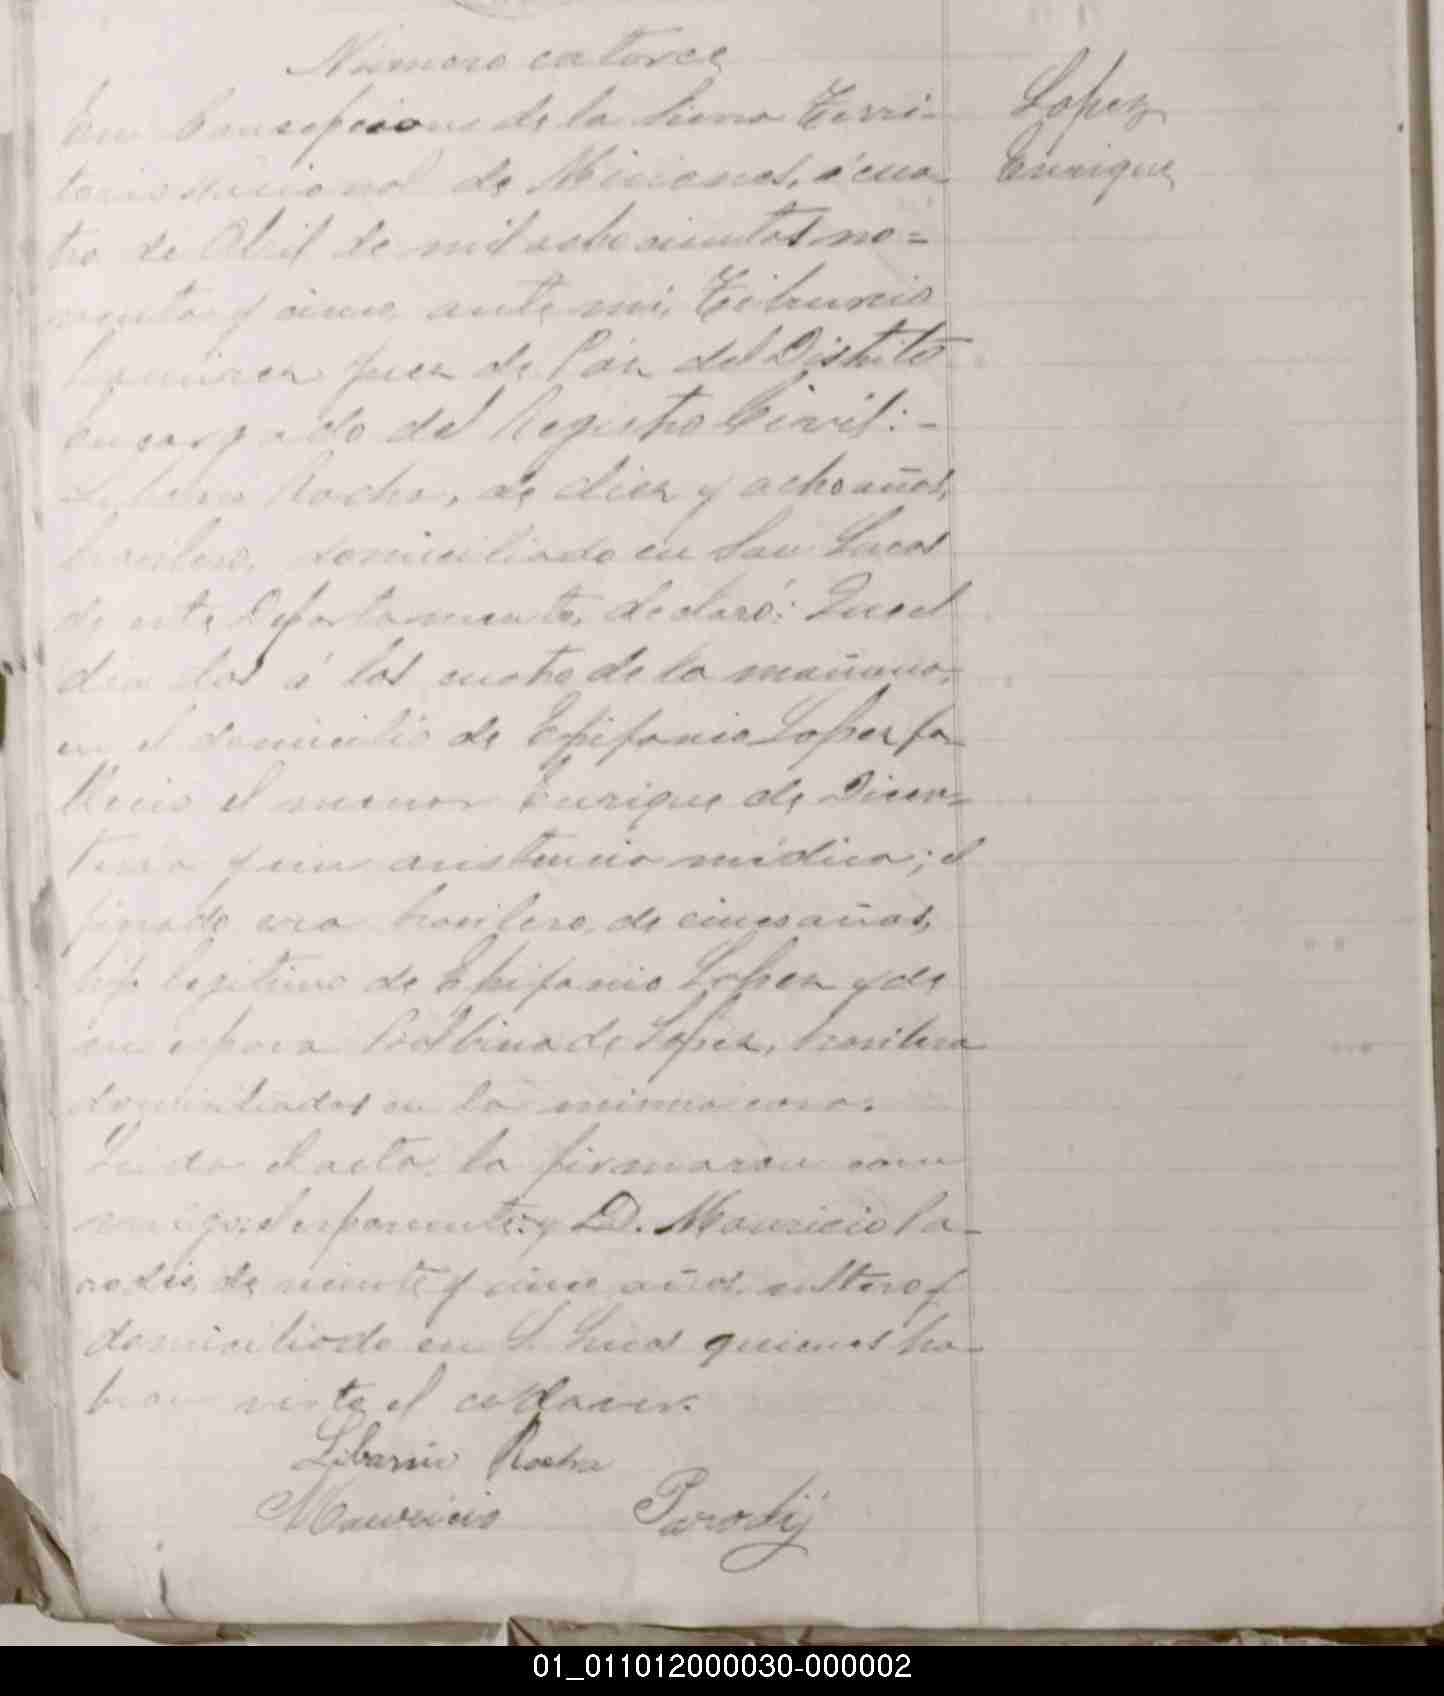 Número catorce
En Consepcion de la Sierra Terri-
torio Nacional de Misiones, á cua-
tro de Abril de mil ochocientos no=
venta y cinco, ante mi, Tiburcio
Juez de Páz del Distrito
Encargado del Registro Civil:-
Rocha, de diez y ocho años,
brasilero, domiciliado en San Lucas
de este Departamento, declaró: Que el
dia dos á las cuatro de la mañana,
en el domicilio de Epifanio Lopez fa-
lleció el menor Enrique de Disen-
teria y sin asistencia médica; el
finado era brasilero, de cinco años,
hijo legitimo de Epifanio Lopez y de
su esposa de Lopez, brasilera
domiciliados en la misma casa.
Leida el acta, la firmaron con-
migo, el esponente y D. Mauricio Pa-
rodis, de veinte y cinco años, soltero y
domiciliado en S. Lucas quienes ha-
bian visto el cadaver.
Libanio Rocha
Mauricio Parodij
Lopez
Enrique
01_011012000030-000002